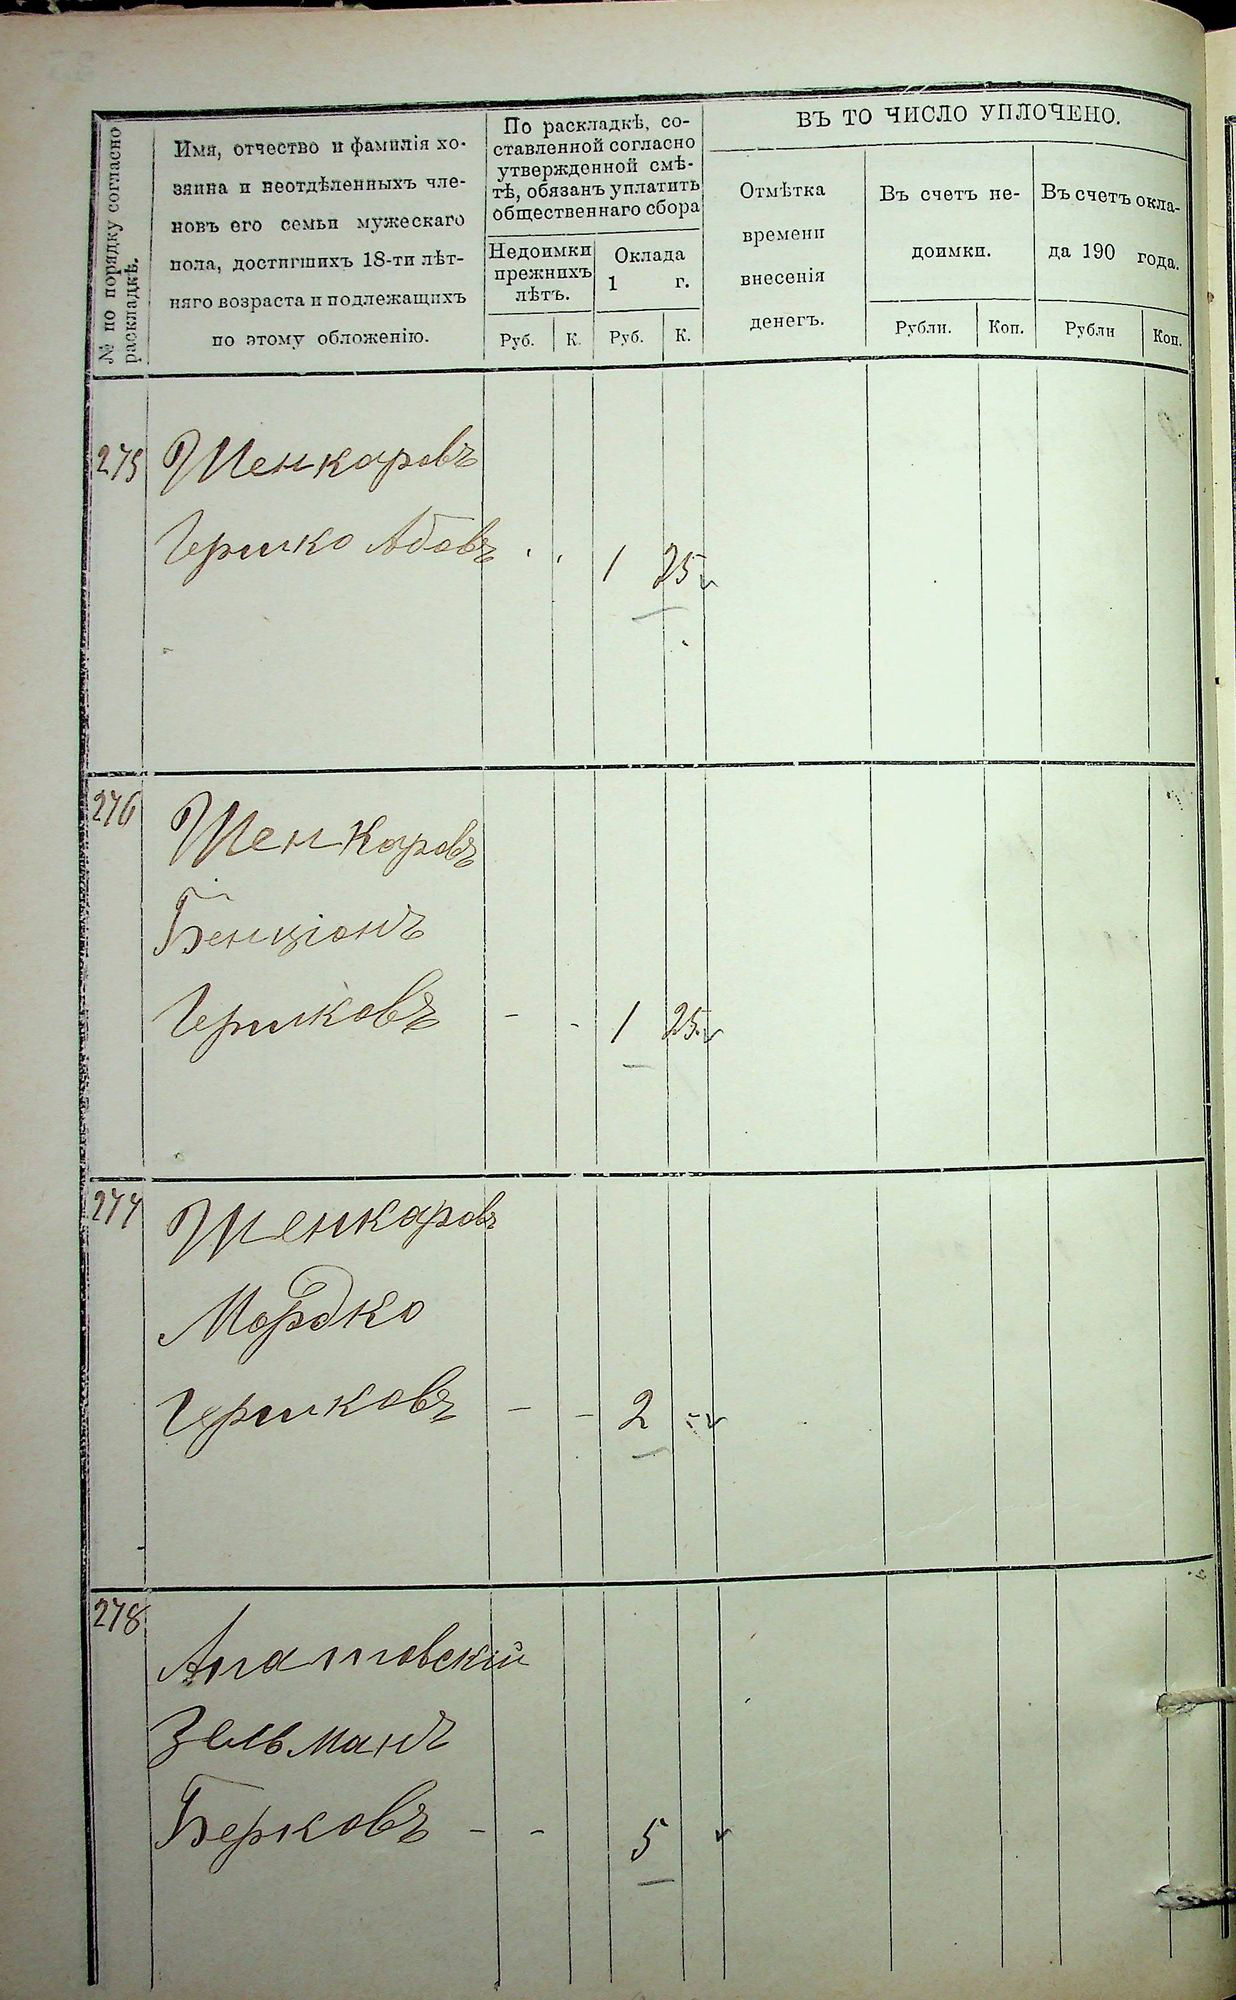 № по порядку согласно
раскладкѣ.
Имя, отчество и фамилія хо-
зяина и неотдѣленныхъ чле-
новъ его семьи мужескаго
пола, достигшихъ 18-ти лѣт-
няго возраста и подлежащихъ
по этому обложенію.
По раскладкѣ, со-
ставленной согласно
утвержденной смѣ-
тѣ, обязанъ уплатить
общественнаго сбора
Недоимки
прежнихъ
лѣтъ.
Оклада
1 г.
Руб. К. Руб. К.
ВЪ ТО ЧИСЛО УПЛОЧЕНО.
Отмѣтка
времени
внесенія
денегъ.
Въ счетъ не-
доимки.
Въ счетъ окла-
да 190 года.
Рубли. Коп. Рубли Коп.
275 Шенкаровъ
Гершко Абовъ 1 25
276 Шенкаровъ
Бенціонъ
Гершковъ - - 1 25
277 Шенкаровъ
Мордко
Гершковъ - - 2 -
278
Апатовскій
Зельманъ
Берковъ - - 5